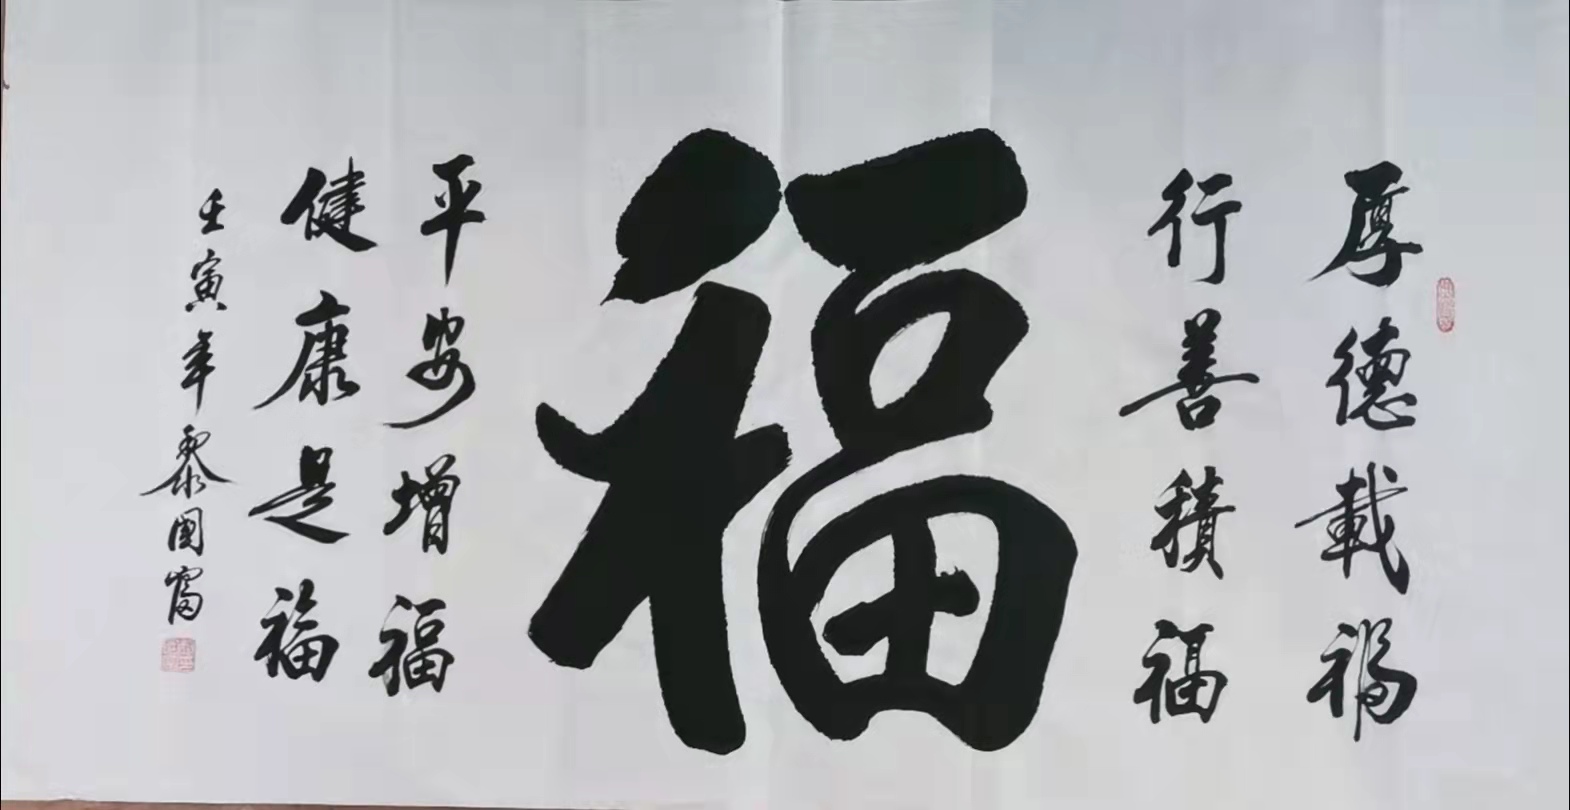 厚德載福
行善積福
福
平安增福
健康是福
壬寅年黎國富